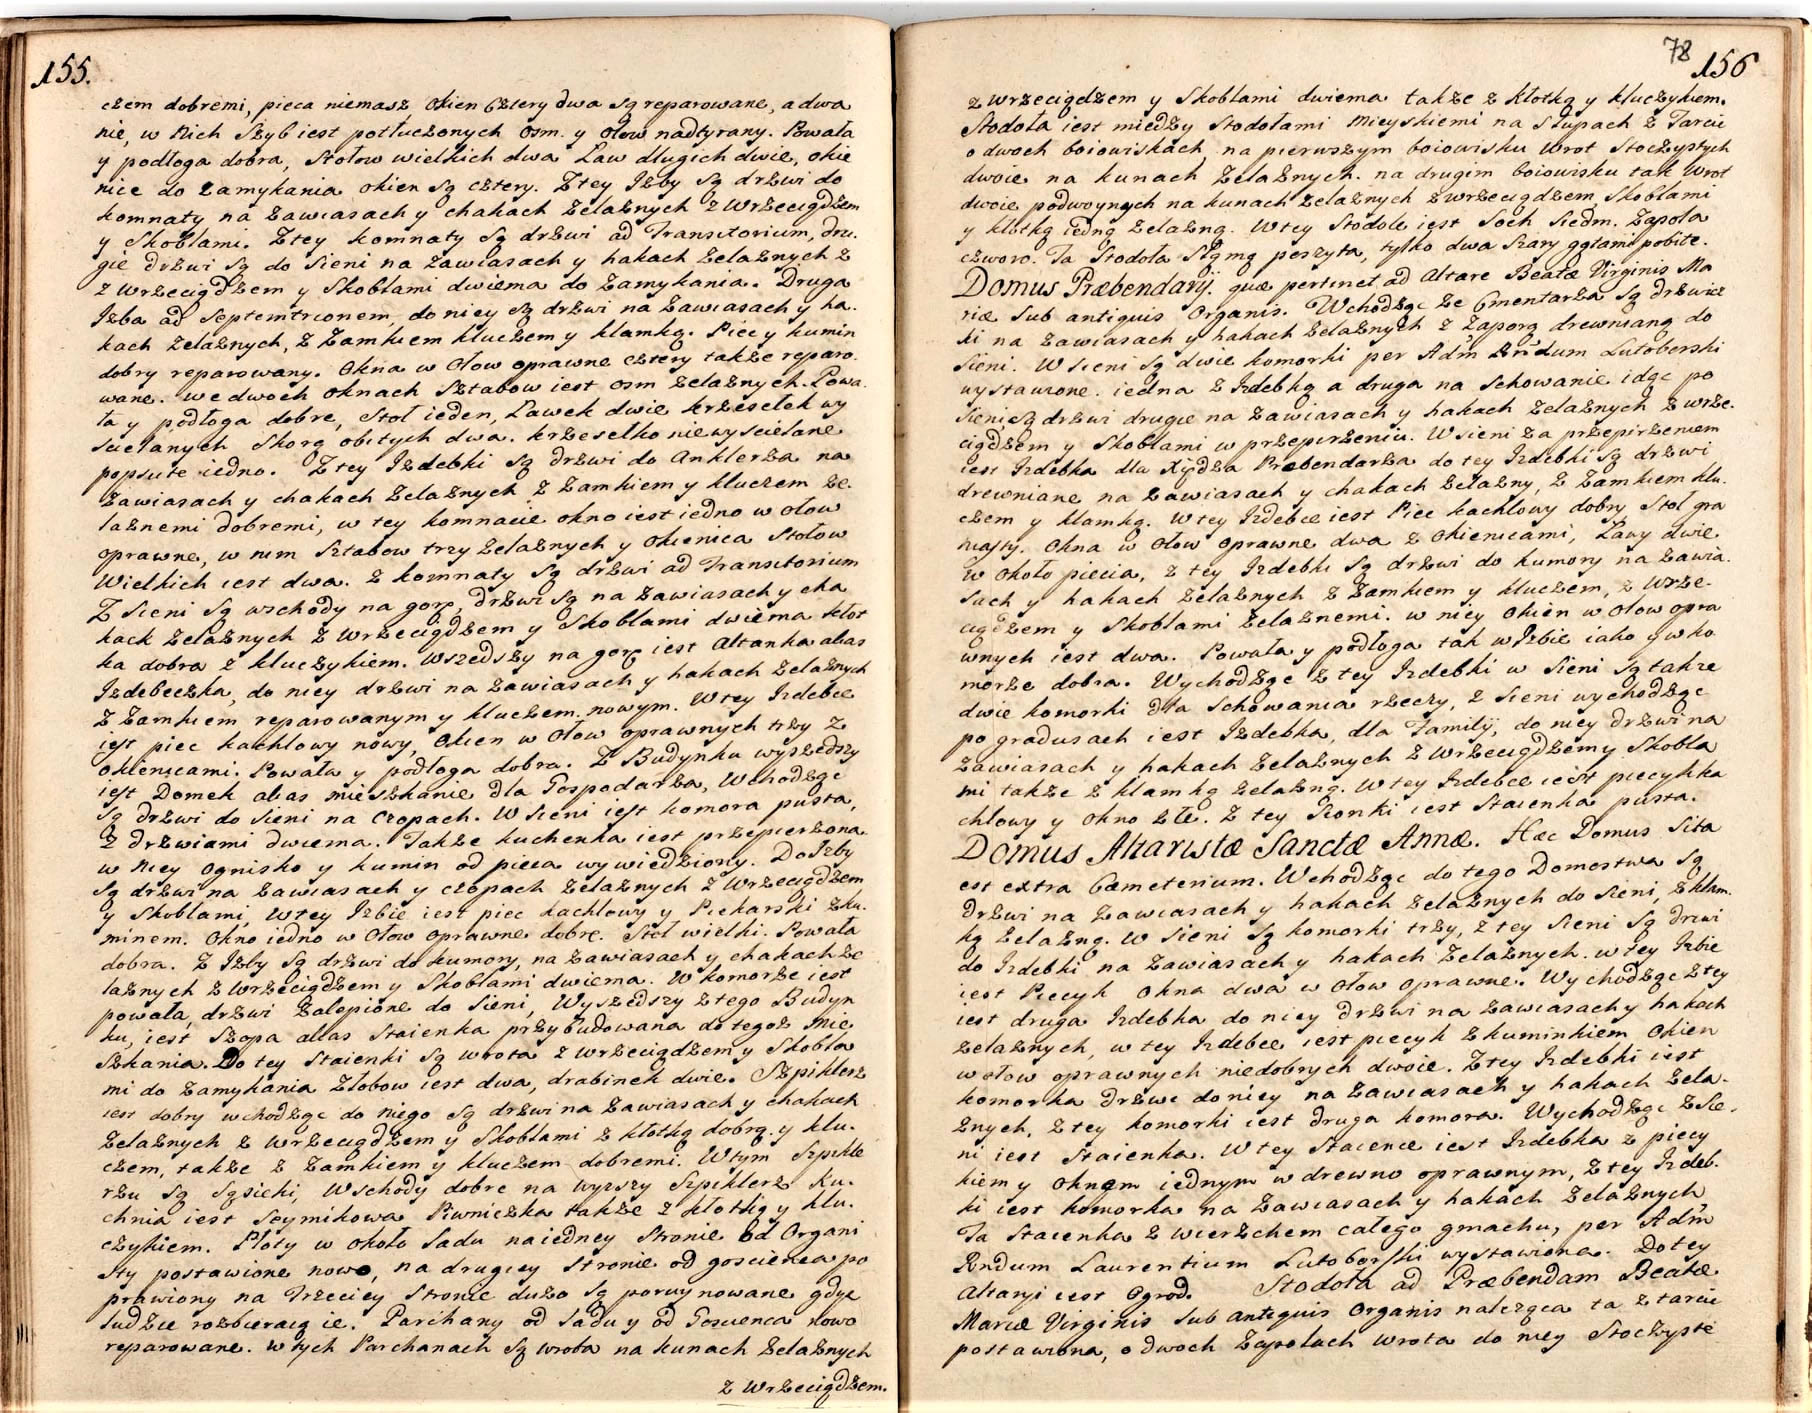 155.
czem dobremi, pieca niemasz, Okien cztery dwa są reparowane, a dwa
nie, w Nich Szyb iest potłuczonych osm. y ołow nadtyrany. Powała
y podłoga dobra, Stołow wielkich dwa Ław długich dwie, okie
nice do zamykania okien są cztery. Z tey Izby są drzwi do
komnaty na zawiasach y chakach Zelaznych z Wrzeciądzem
y Skoblami. Z tey komnaty są drzwi ad Transitorium, dru.
gie drzwi są do Sieni na zawiasach y hakach Zelaznych z
z wrzeciądzem y Skoblami dwiema do Zamykania. Druga
Izba ad Septemtrionem, do niey są drzwi na zawiasach y ha.
kach zelaznych, z Zamkiem kluczem y klamką. Piec y kumin
dobry reparowany. Okna w Ołow oprawne cztery także reparo.
wane. we dwoch oknach Sztabow iest osm zelaznych. Powa.
ła y podłoga dobre, Stoł ieden, Ławek dwie krzesełek wy
scielanych Skorą obitych dwa. krzesełko niewyscielane
popsute iedno. Z tey Izdebki są drzwi do Anklerza na
Zawiasach y chakach Zelaznych z Zamkiem y kluczem ze.
laznemi dobremi, w tey komnacie okno iest iedno w ołow
oprawne, w nim Sztabow trzy Zelaznych y okienica Stołow
Wielkich iest dwa. z komnaty są drzwi ad Transitorium
Z Sieni są wschody na gorę, drzwi są na Zawiasach y cha
kach Zelaznych z Wrzeciądzem y Skoblami dwiema kłot
ka dobra z kluczykiem. Wszedszy na gorę iest Altanka alias
Izdebeczka, do niey drzwi na zawiasach y hakach Zelaznych
z Zamkiem reparowanym y kluczem nowym. W tey Izdebce
iest piec kachlowy nowy, Okien w Ołow oprawnych trzy z
okienicami. Powała y podłoga dobra. Z Budynku wyszedszy
iest Domek alias mieszkanie dla Gospodarza, Wchodząc
są drzwi do Sieni na Czopach. W Sieni iest komora pusta,
z drzwiami dwiema. Także kuchenka iest przepierzona
w Niey Ognisko y kumin od pieca wywiedziony. Do Izby
są drzwi na zawiasach y czopach Zelaznych z Wrzeciądzem
y Skoblami, w tey Izbie iest piec kachlowy y Piekarski z ku.
minem. Okno iedno w Ołow oprawne dobre. Stoł wielki. Powała
dobra. Z Izby są drzwi do kumory, na zawiasach y chakach Ze
laznych z Wrzeciądzem y Skoblami dwiema. W komorze iest
powała, drzwi Zalepione do Sieni, Wyszedszy z tego Budyn
ku, iest Szopa alias Staienka przybudowana do tegoz Mie
szkania. Do tey Staienki są wrota z wrzeciądzem y Skobla
mi do zamykania Złobow iest dwa, drabinek dwie. Szpiklerz
iest dobry wchodząc do niego są drzwi na zawiasach y chakach
Zelaznych z wrzeciądzem y Skoblami z kłotką dobrą. y klu.
czem, także z Zamkiem y kluczem dobremi. W tym Szpikle
rzu są Sąsieki, Wschody dobre na wyzszy Szpiklerz Ku.
chnia iest Seymikowa Piwniczka także z kłotką y klu.
czykiem. Płoty w około Sadu na iedney Stronie od Organi
sty postawione nowo, na drugiey stronie od goscienca po
prawiony na Trzeciey Stronie duzo są porwynowane gdyz
ludzie rozbieraią ie. Parchany od Sadu y od Goscienca nowo
reparowane. w tych Parchanach są wrota na kunach Zelaznych
z Wrzeciądzem.
78 156
z wrzeciądzem y Skoblami dwiema także z kłotką y kluczykiem.
Stodoła iest miedzy Stodołami Mieyskiemi na Słupach z Tarcic
o dwoch boiowiskach, na pierwszym boiowisku Wrot Stoczystych
dwoie na kunach Zelaznych. na drugim boiowisku tak Wrot
dwoie podwoynych na kunach Zelaznych z wrzeciądzem, Skoblami
y kłotką iedną Zelazną. W tey Stodole iest Soch Siedm. Zapola
czworo. Ta Stodoła Słomą poszyta, tylko dwa Szary gątami pobite.
Domus Præbendarÿ. quæ pertinet ad Altare Beatæ Virginis Ma
riæ Sub antiquis Organis. Wchodząc ze Cmentarza są drzwicz
ki na zawiasach y hakach Zelaznych z Zaporą drewnianą do
Sieni. W Sieni są dwie komorki per Adm Rndum Lutoborski
wystawione. iedna z Izdebką a druga na Schowanie idąc po
sieni są drzwi drugie na zawiasach y hakach Zelaznych z wrze.
ciądzem y Skoblami w przepierzeniu. W Sieni za przepirzeniem
iest Izdebka dla Xiędza Præbendarza do tey Izdebki są drzwi
drewniane na zawiasach y chakach Zelazny, z Zamkiem klu.
czem y klamką. W tey Izdebce iest Piec kachlowy dobry Stoł gra
niasty. Okna w Ołow oprawne dwa z Okienicami, Ławy dwie
w około piecia, z tey Izdebki są drzwi do kumory na zawia.
sach y hakach Zelaznych z Zamkiem y kluczem, z wrze.
ciądzem y Skoblami Zelaznemi. w niey Okien w Ołow opra
wnych iest dwa. Powała y podłoga tak w Izbie iako y w ko
morze dobra. Wychodząc z tey Izdebki w Sieni są takze
dwie komorki dla Schowania rzeczy, z Sieni wychodząc
po gradusach iest Izdebka, dla Familÿ, do niey drzwi na
zawiasach y hakach Zelaznych z Wrzeciądzem y Skobla
mi także z klamką Zelazną. W tey Izdebce iest piecyk ka
chlowy y Okno złe. Z tey Sionki iest Staienka pusta.
Domus Altaristæ Sanctæ Annæ. Hæc Domus Sita
est extra Cæmeterium. Wchodząc do tego Domostwa są
drzwi na zawiasach y hakach zelaznych do Sieni, z klam.
ką Zelazną. W Sieni są komorki trzy, z tey Sieni są drzwi
do Izdebki na Zawiasach y hakach Zelaznych. w tey Izbie
iest Piecyk Okna dwa w Ołow oprawne. Wychodząc z tey
iest druga Izdebka do niey drzwi na zawiasach y hakach
Zelaznych, w tey Izdebce iest piecyk z kuminkiem Okien
w ołow oprawnych niedobrych dwoie. Z tey Izdebki iest
komorka drzwi do niey na Zawiasach y hakach Zela.
znych, z tey komorki iest druga komora. Wychodząc z Sie.
ni iest Staienka. W tey Staience iest Izdebka z piecy
kiem y Oknem iednym w drewno oprawnym, z tey Izdeb.
ki iest komorka na Zawiasach y hakach Zelaznych
Ta Staienka z wierzchem całego gmachu, per Adm
Rndum Laurentium Lutoborski wystawiona. Do tey
Altaryi iest Ogrod. Stodoła ad Præbendam Beatæ
Mariæ Virginis Sub antiquis Organis naleząca ta z tarcic
postawiona, o dwoch Zapolach wrota do niey Stoczyste